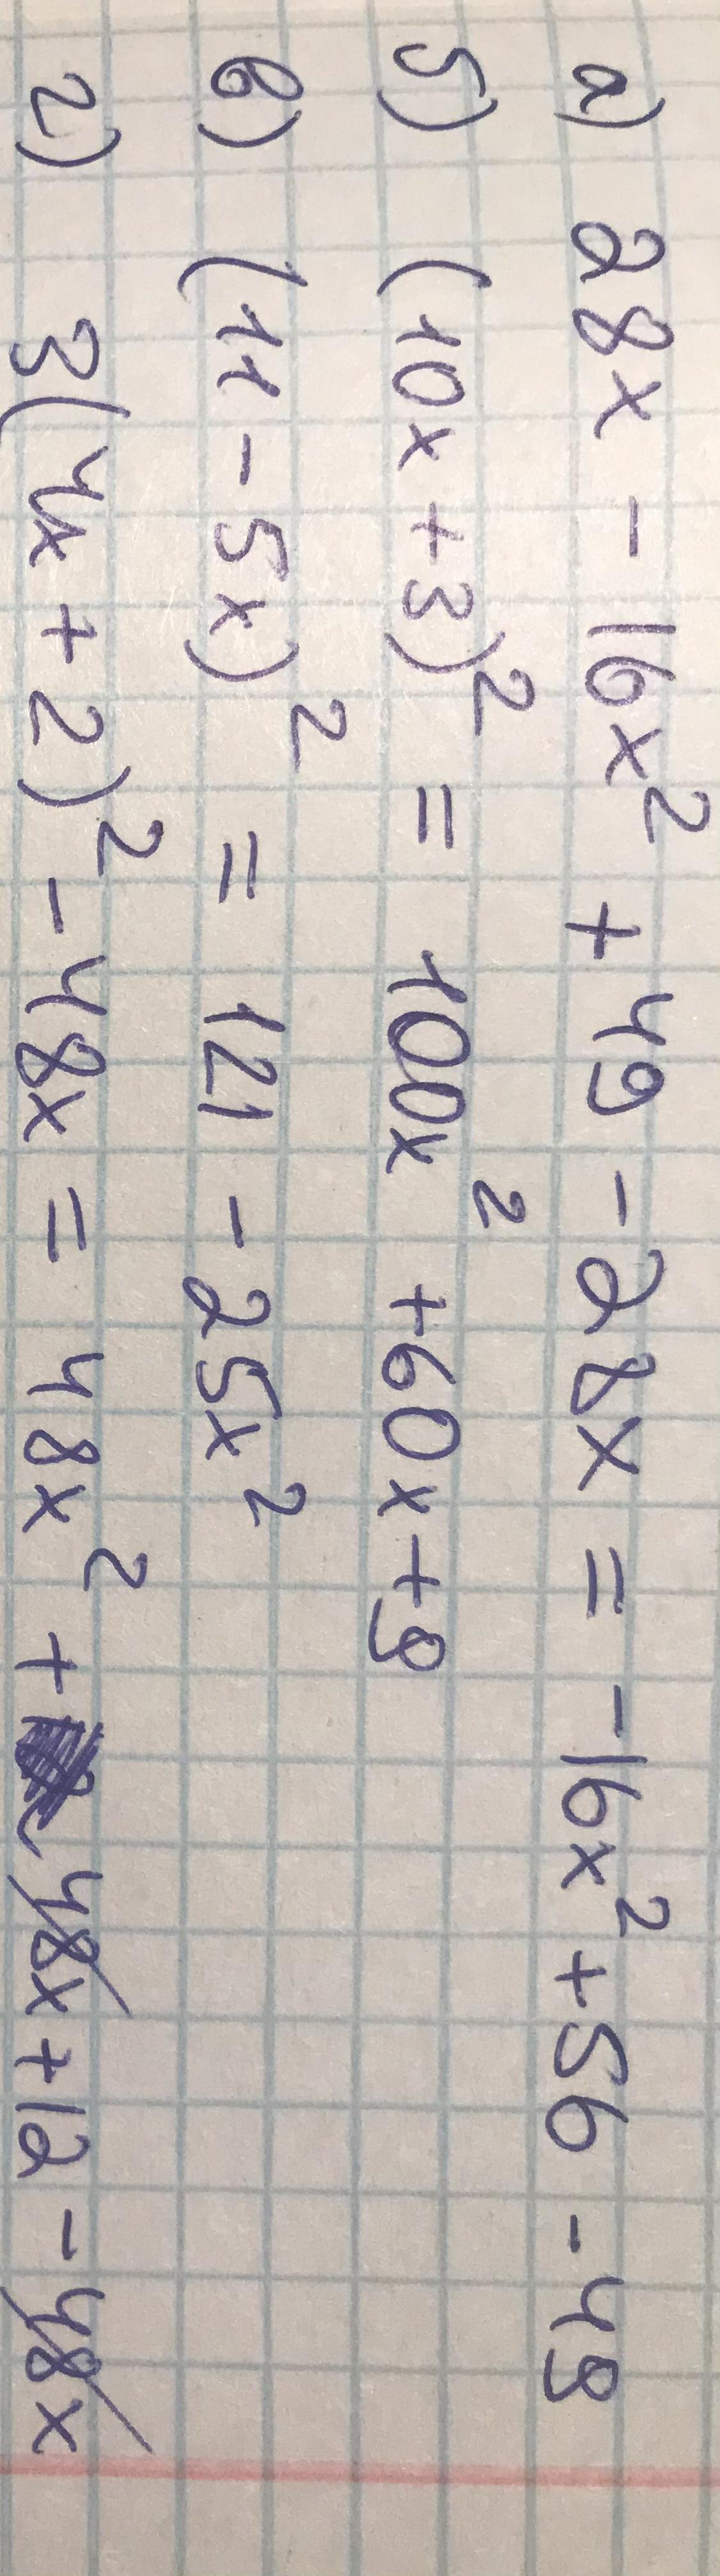 а) 28x - 16x² + 49 - 28x = -16x² + 56 - 49
б) (10x + 3)² = 100x² + 60x + 9
в) (11 - 5x)² = 121 - 25x²
г) 3(4x + 2)² - 48x = 48x² + 48x + 12 - 48x